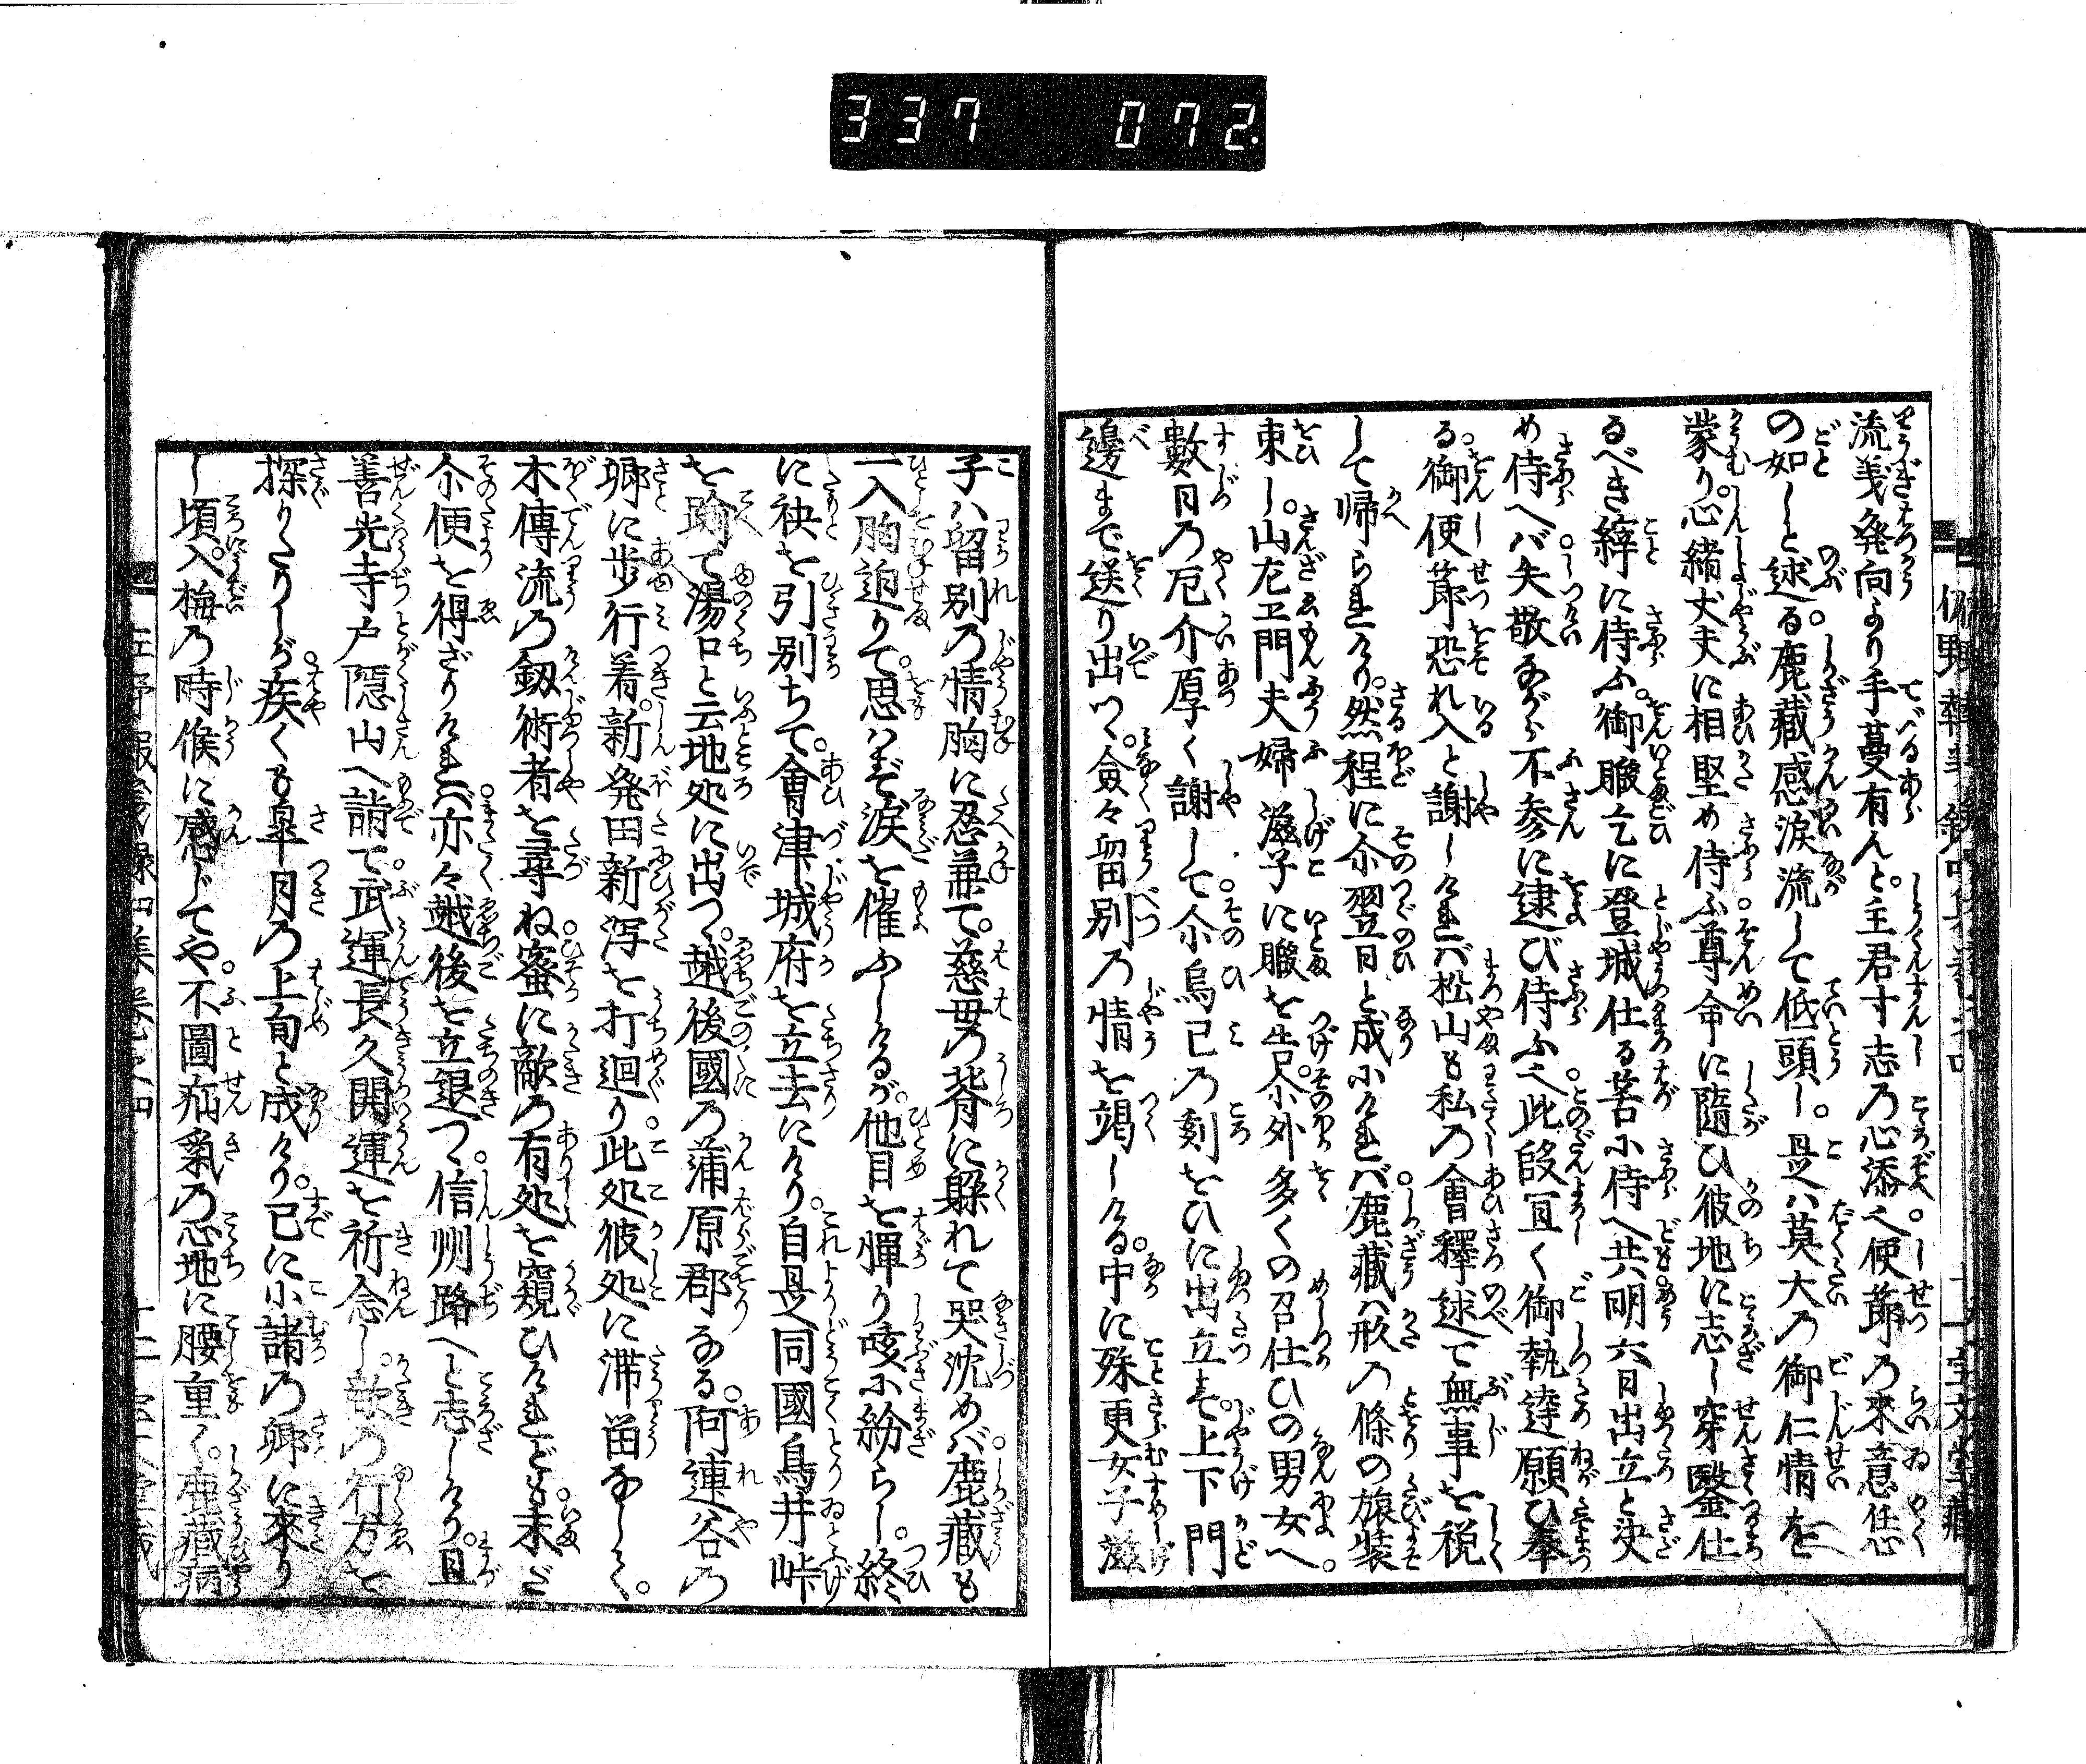 337 072
流義発向より手蔓有んと。主君寸志乃心添之使節乃来意任恐
の如しと述る。鹿蔵感涙流して低頭し。是ハ莫大乃御仁情を
蒙り。心緒丈夫に相堅め侍ふ尊命に随ひ彼地に志し穿鑿仕
るべき縡に侍ふ。御暇乞に登城仕る筈小侍へ共明六日出立と決
め侍へバ失敬ながら不参に逮び侍ふ之此段冝く御執達願ひ奉
る。御使節恐れ入と謝しけれバ松山も私の會釋述て無事を祝
して帰られけり。然程に尒翌日と成小けれバ鹿蔵ハ形の條の旅装
束し。山左エ門夫婦滋子に暇を告。尒外多くの召仕ひの男女へ
數日乃厄介厚く謝して尒烏巳乃刻をひに出立す。上下門
邊まで送り出つゝ。僉々留別乃情を竭しける。中に殊更女子滋
子ハ留別乃情胸に忍兼て。慈母乃背に躲れて哭沈めバ鹿蔵も
一入胸迫りて。思ハず涙を催ふしけるが。他目を憚り咳小紛らし。終
に袂を引別ちて。會津城府を立去にけり。自是同國鳥井峠
を踰て湯口と云地処に出つゝ。越後國乃蒲原郡なる。阿連谷乃
郷に歩行着。新発田新泻を打廻り。此処彼処に滞留なしく。
木傳流乃釼術者を尋ね。蜜に敵乃有処を窺ひけれども。未ざ
尒便を得ざりけれバ。亦々越後を立退つゝ。信州路へと志しけり。且
善光寺戸隠山へ詣で。武運長久開運を祈念し。敵の行方を
探りたりしが。疾くも皐月乃上旬と成けり。已に小諸乃郷に来り
し頃。入梅乃時候に感じてや。不圖疝氣乃心地に腰重く。鹿蔵病